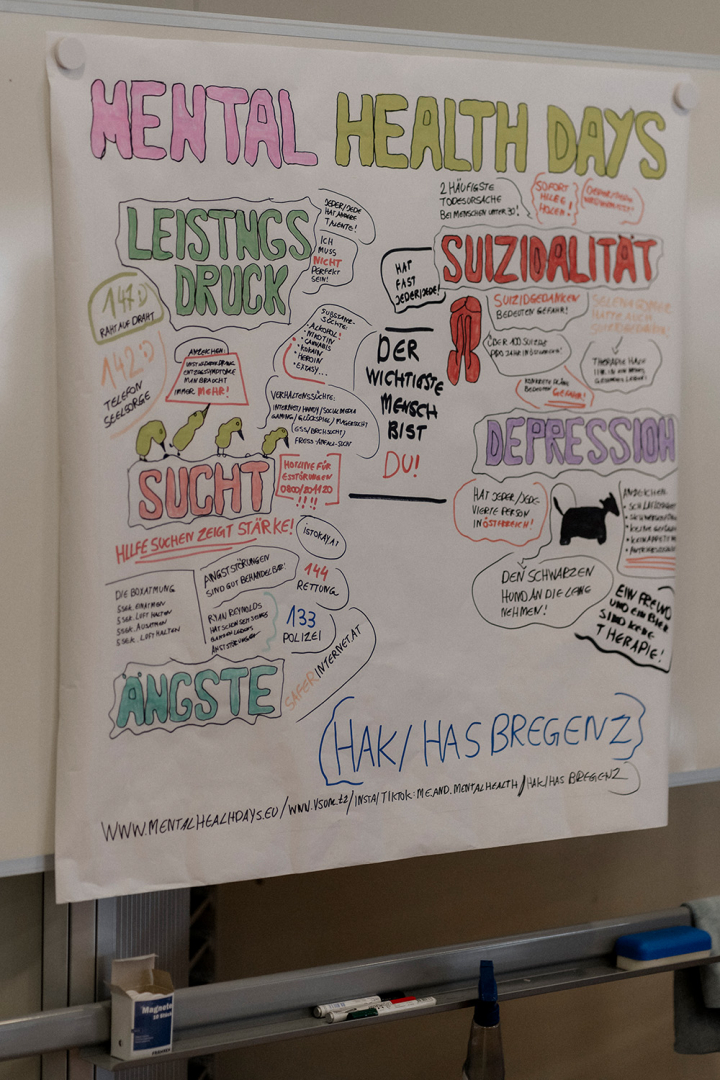 MENTAL HEALTH DAYS
LEISTNGS
DRUCK
JEDER/JEDE
HAT ANDERE
TALENTE!
ICH
MUSS
NICHT
PERFEKT
SEIN!
147
RAT AUF DRAHT
142
TELEFON
SEELSORGE
ANZEICHEN:
MAN BRAUCHT
IMMER MEHR!
SUBSTANZ-
SÜCHTE:
ALKOHOL!
NIKOTIN
CANNABIS
KOKAIN
HEROIN
EXTASY...
VERHALTENSSÜCHTE:
INTERNET/HANDY/SOCIAL MEDIA
GAMING/GLÜCKSPIEL/MAGERSUCHT
ESS/BRECHSUCHT/
FRESS-ANFALL-SUCHT
SUCHT
HOTLINE FÜR
ESSTÖRUNGEN
0800/201120
!!!!
HILFE SUCHEN ZEIGT STÄRKE!
ISTOKAY.AT
DIE BOXATMUNG
5SEK. EINATMEN
5SEK. LUFT HALTEN
5SEK. AUSATMEN
5SEK. LUFT HALTEN
ANGSTSTÖRUNGEN
SIND GUT BEHANDELBAR!
RYAN REYNOLDS
HAT SCHON SEIT
ANGSTSTÖRUNGEN
144
RETTUNG
133
POLIZEI
SAFERINTERNET.AT
ÄNGSTE
2 HÄUFIGSTE
TODESURSACHE
BEI MENSCHEN UNTER 30!
SOFORT
HILFE
HOLEN!
SUIZIDALITÄT
HAT
FAST
JEDER/JEDE!
SUIZIDGEDANKEN
BEDEUTEN GEFAHR!
SELENA GOMEZ
HATTE AUCH
SUIZIDGEDANKEN!
ÜBER 1100 SUIZIDE
PRO JAHR IN ÖSTERREICH!
THERAPIE HALF
KONKRETE PLÄNE
BEDEUTEN GEFAHR!
DER
WICHTIGSTE
MENSCH
BIST
DU!
DEPRESSION
HAT JEDER/JEDE
VIERTE PERSON
IN ÖSTERREICH!
ANZEICHEN:
DEN SCHWARZEN
HUND AN DIE LEINE
NEHMEN!
EIN FREUND
UND EIN BIER
SIND KEINE
THERAPIE!
HAK/HAS BREGENZ
WWW.MENTALHEALHDAYS.EU/WWW.VSUM.TV/INSTA/TIKTOK:ME.AND.MENTALHEALTH/HAK/HAS BREGENZ
Magnete